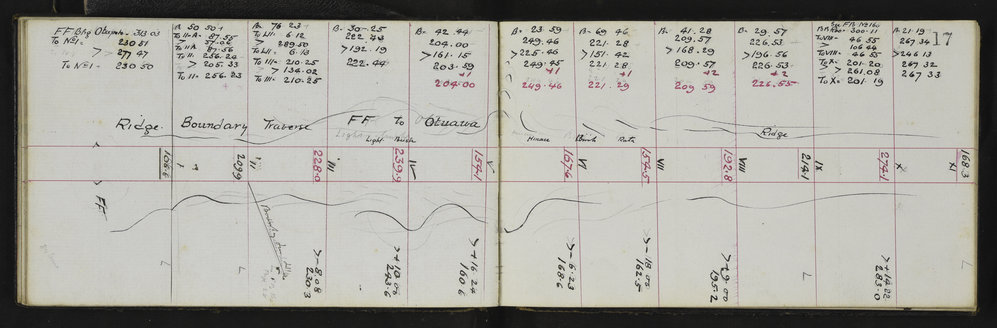 FF Bdy Otuawa - 313.03
To No 1 = 230 51
> 277 47
To No 1 - 230 50
B- 50 50 +
To IIA- 87.55
> 57.06
To IIA 87.56
To II. 256.24
> 205.33
To II- 256.23
B- 76 23
To LII- 6.12
> 289.50
To LII- 6.13
To III- 210.25
> 134.02
To III- 210.25
B- 30.25
222.43
> 192.19
222.44
B- 42.44
204.00
> 161.15
203.59
+1
204.00
B- 23.59
249.46
> 225.46
249.45
+1
249.46
B- 69 46
221.28
> 151.42
221.28
+1
221.29
B- 41.28
209.57
> 168.29
209.57
+2
209 59
B- 29.57
226.53
> 196.56
226.53
+2
226.55
See FB No 1641
300.11
To VIII- 46 55
> 106 44
To VIII- 46 55
To X- 201.20
> 261.08
To X- 201.19
B- 21.19
267 34
> 246.13
267 32
267 33
17
Ridge Boundary Traverse FF To Otuawa
Light Bush
Light Bush
Ridge
166.6
II
209.9
III
228.0
III
239.9
IV
154.1
V
157.6
VI
154.5
VII
192.8
VIII
214.1
IX
274.1
X
168.3
XI
FF
>-8.08
230.3
>+10.00
243.6
>+16.24
160.6
>-6.23
168.6
>-18.02
162.5
>+14.22
283.0
L
L
L
L